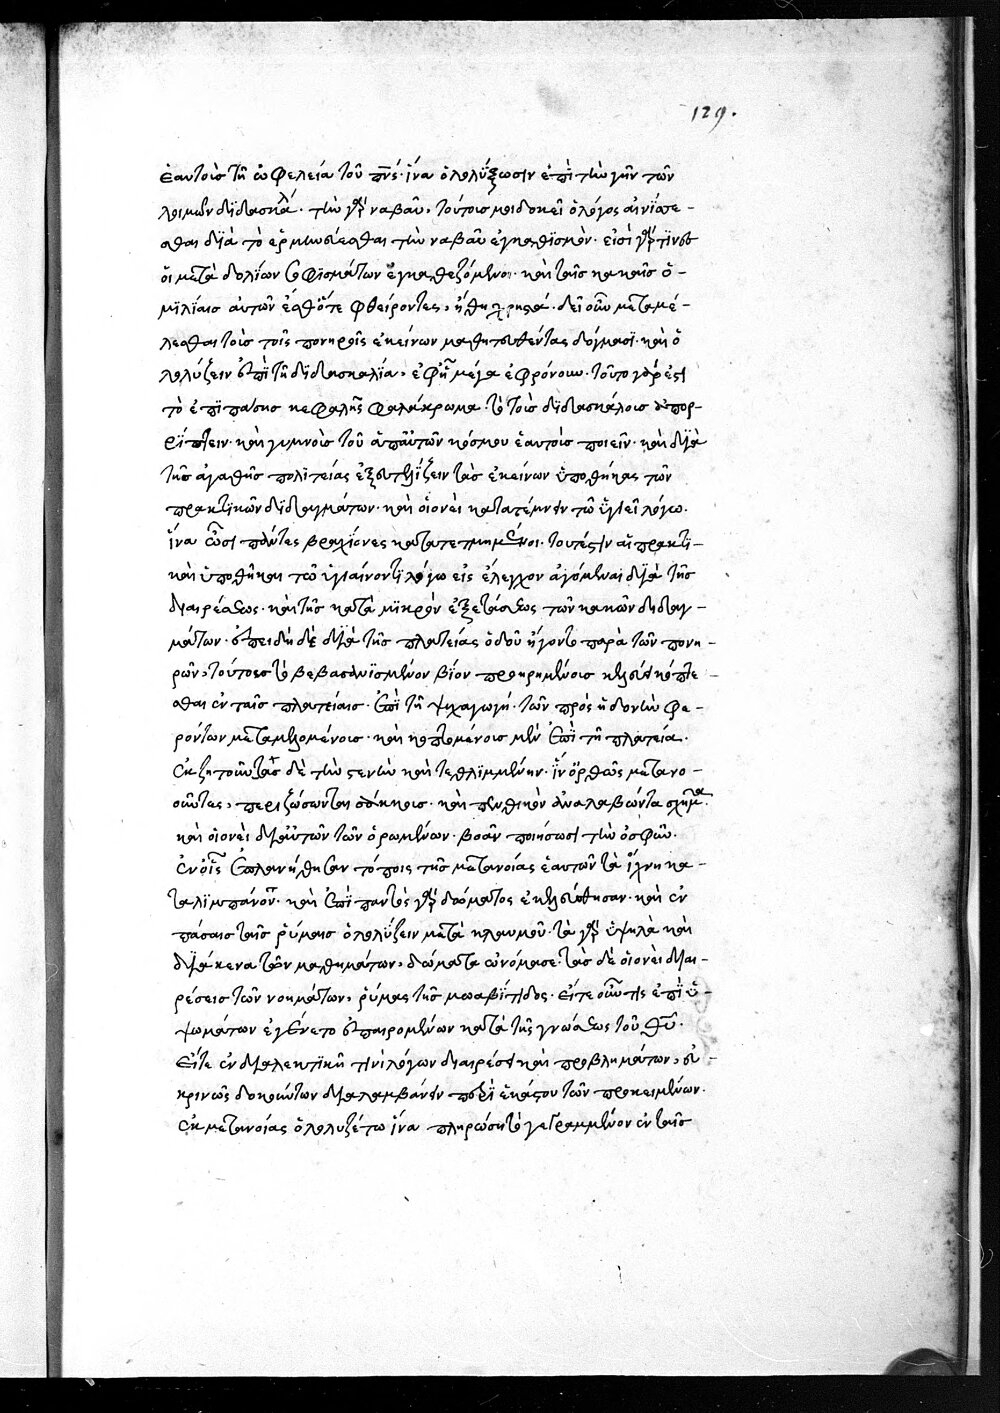 129.
ἑαυτοὺς τῇ ὠφελεία τοῦ πνς· ἵνα ὀλολύξωσιν ἐπὶ τὴν γῆν τῶν
λοιμῶν διδασκαλ· τὴν γὰρ ναβαῦ, τούτοις μοι δοκεῖ ὁ λόγος αἰνίττε-
σθαι διὰ τὸ ἑρμηνεύεσθαι τὴν ναβαῦ ἐγκαθισμόν· εἰσὶ γάρ τινες
οἱ μετὰ δολίων σοφισμάτων ἐγκαθεζόμενοι· καὶ ταῖς κακαῖς ὁ-
μιλίαις αὐτῶν ἐσθότε φθείροντες, ἤθη χρηστά· δεῖ οὖν μεταμέ-
λεσθαι τοὺς τοῖς πονηροῖς ἐκείνων μαθητευθέντας δόγμασι· καὶ ὀ-
λολύζειν ἐπὶ τῇ διδασκαλία, ἐφ᾽ ᾗ μέγα ἐφρόνουν· τοῦτο γάρ ἐστι
τὸ ἐπὶ πάσης κεφαλῆς φαλάκρωμα· τὸ τοὺς διδασκάλους ἀπορ-
ρίπτειν· καὶ γυμνοὺς τοῦ ἀπ᾽ αὐτῶν κόσμου ἑαυτοὺς ποιεῖν· καὶ διὰ
τῆς ἀγαθῆς πολιτείας ἐξευτελίζειν τὰς ἐκείνων ὑποθήκας τῶν
πρακτικῶν διδαγμάτων· καὶ οἱονεὶ κατατέμνειν τῶ ὑγιεῖ λόγω·
ἵνα ὦσι πάντες βραχίονες κατατετμημένοι· τουτέστιν αἱ πρακτι-
καὶ ὑποθῆκαι τῶ ὑγιαίνοντι λόγω εἰς ἔλεγχον ἀγόμεναι διὰ τῆς
διαιρέσεως· καὶ τῆς κατὰ μικρὸν ἐξετάσεως τῶν κακῶν διδαγ-
μάτων· ἐπειδὴ δὲ διὰ τῆς πλατείας ὁδοῦ ἤγοντο παρὰ τῶν πονη-
ρῶν, τούτοις τὸ βεβασανισμένον βίον προηρημένοις κελεύει κόπτε-
σθαι ἐν ταῖς πλατείαις· ἐπὶ τῇ ψυχαγωγῇ· τῶν πρὸς ἡδονὴν φε-
ρόντων μεταμελομένοις· καὶ κοπτομένοις μὲν ἐπὶ τῇ πλατεία·
ἐκζητοῦντας δὲ τὴν στενὴν καὶ τεθλιμμένην· ἵν᾽ ὀρθῶς μετανο-
οῦντες, περιζώσωνται σάκκους· καὶ πενθικὸν ἀναλαβόντα σχῆμα·
καὶ οἱονεὶ δι᾽ αὐτῶν τῶν ὁρωμένων· βοᾶν ποιήσωσι τὴν ὀσφῦν·
ἐν οἷς ἐπλανήθησαν τόποις τῆς μετανοίας ἑαυτῶν τὰ ἴχνη κα-
ταλιμπάνον· καὶ ἐπὶ παντὸς γὰρ δώματος ἐκελεύσθησαν· καὶ ἐν
πάσαις ταῖς ῥύμαις ὀλολύζειν μετὰ κλαυθμοῦ· τὰ γὰρ ὑψηλὰ καὶ
διάκενα τῶν μαθημάτων, δώματα ὠνόμασε· τὰς δὲ οἱονεὶ διαι-
ρέσεις τῶν νοημάτων, ῥύμας τῆς μωαβίτιδος· εἴτε οὖν τις ἐπὶ ὑ-
ψωμάτων ἐγένετο ἐπαιρομένων κατὰ τῆς γνώσεως τοῦ θυ·
εἴτε ἐν διαλεκτικῇ τινὶ λόγων διαιρέσει καὶ προβλημάτων, εὐ-
κρινῶς δοκούντων διαλαμβάνειν περὶ ἑκάστου τῶν προκειμένων·
ἐκ μετανοίας ὀλολυζέτω ἵνα πληρώση τὸ γεγραμμένον ἐν ταῖς